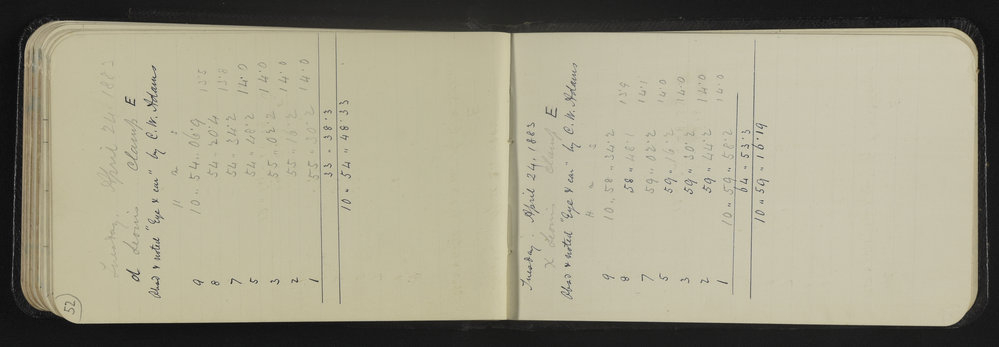 52
Tuesday. April 24. 1883
d Leonis Clamp E
Obsd & noted "Eye & ear" by C. W. Adams
h m s
9 10 .. 54 .. 06.9 13.5
8 54 .. 20.4 13.8
7 54 .. 34.2 14.0
5 54 .. 48.2 14.0
3 55 .. 02.2 14.0
2 55 .. 16.2 14.0
1 55 .. 30.2 14.0
33 .. 38.3
10 .. 54 .. 48.33
Tuesday. April 24. 1883
χ Leonis Clamp E
Obsd & noted "Eye & ear" by C. W. Adams
h m s
9 10 .. 58 .. 34.2 13.9
8 58 .. 48.1 14.1
7 59 .. 02.2 14.0
5 59 .. 16.2 14.0
3 59 .. 30.2 14.0
2 59 .. 44.2 14.0
1 10 .. 59 .. 58.2
64 .. 53.3
10 .. 59 .. 16.19